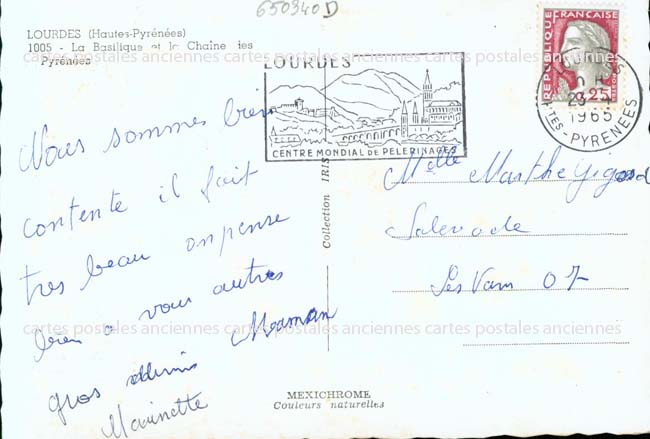 650340D
LOURDES (Hautes-Pyrénées)
1005 - La Basilique et la Chaîne des
Pyrénées
cartes postales anciennes cartes postales anciennes cartes postales anciennes
LOURDES
CENTRE MONDIAL DE PELERINAGES
REPUBLIQUE FRANÇAISE
0,25
1965
HTES-PYRENEES
Nous sommes bien
contente il fait
tres beau on pense
bien a vous autres
gros Maman
Marinette
Collection IRIS
Melle Marthe
Les Vans 07
cartes postales anciennes cartes postales anciennes cartes postales anciennes
MEXICHROME
Couleurs naturelles